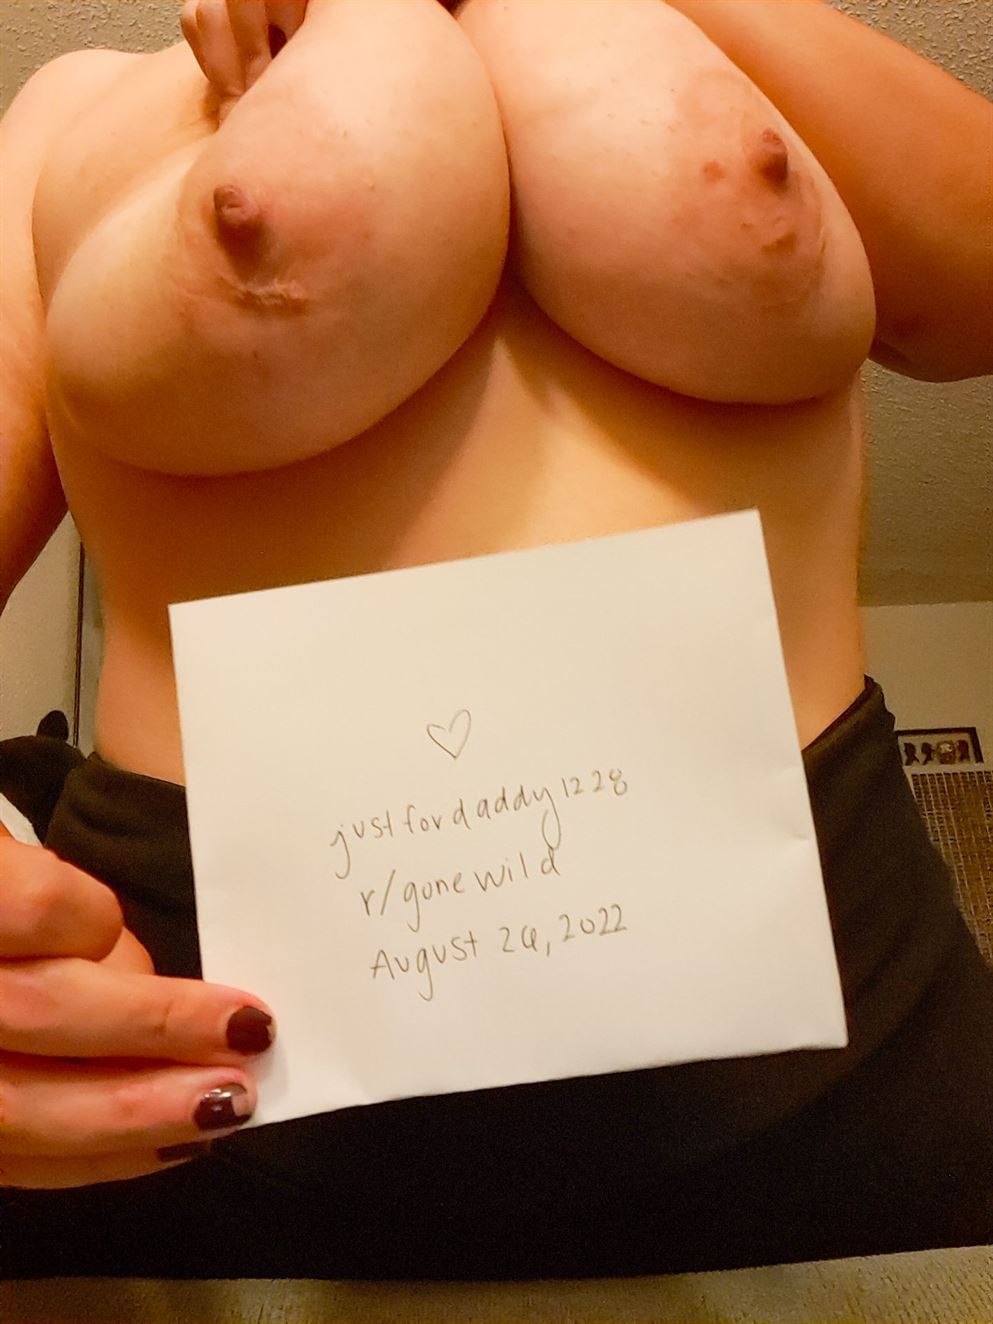 justfordaddy1228
r/gonewild
August 26, 2022